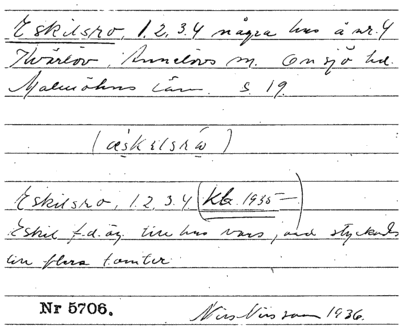 Eskilsro, 1.2.3.4 några hus å nr. 4
Kvärlöv, Annelövs sn. Onsjö hd.
Malmöhus län. s. 19.
(ạskəlsrọ)
Eskilsro, 1.2.3.4 (Kb. 1935—)
Eskil f.d. äg. till hus vars, jord styckats
i flera tomter
Nr 5706.
Nils Nilsson 1936.